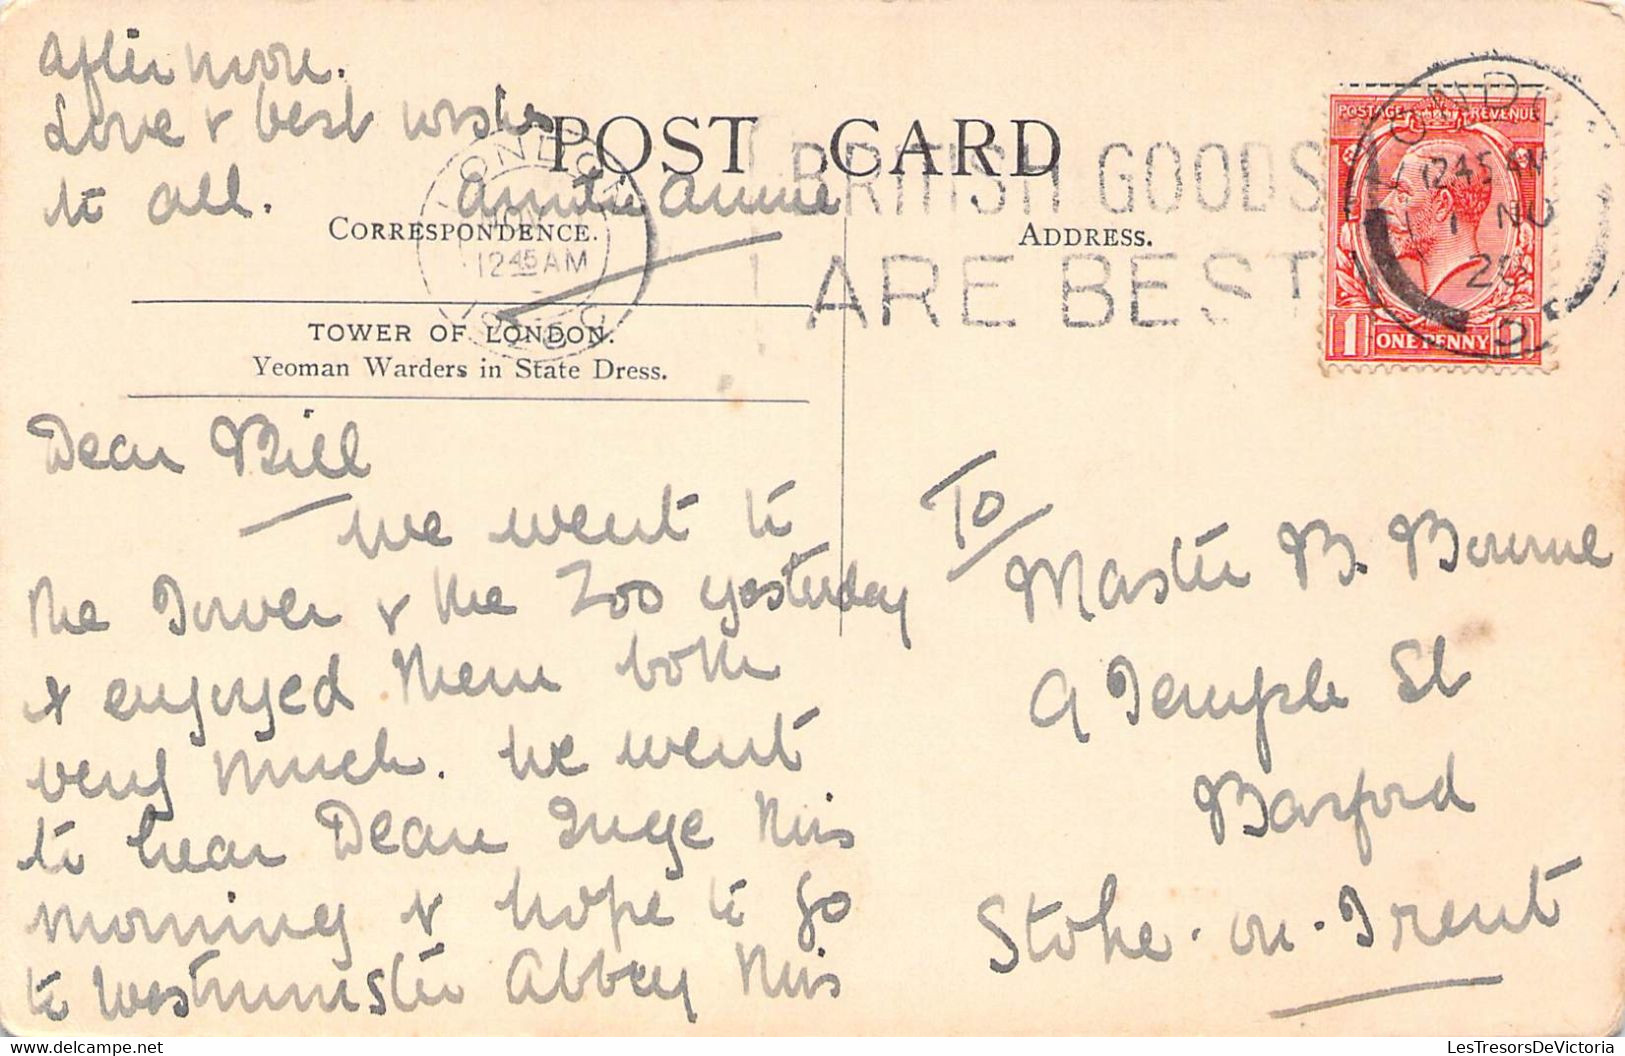 after noon.
Love & best wishes
to all. Auntie Annie
POST CARD
BRITISH GOODS
ARE BEST
CORRESPONDENCE.
ADDRESS.
LONDON
NOV
12.45 AM
POSTAGE REVENUE
12.45 AM
1 NO
28
1 ONE PENNY 1
TOWER OF LONDON.
Yeoman Warders in State Dress.
Dear Bill
We went to
the Tower & the Zoo yesterday
& enjoyed them both
very much. We went
to hear Dean Inge this
morning & hope to go
to Westminster Abbey this
To
Master B. Bourne
9 Temple St
Basford
Stoke-on-Trent
LesTresorsDeVictoria